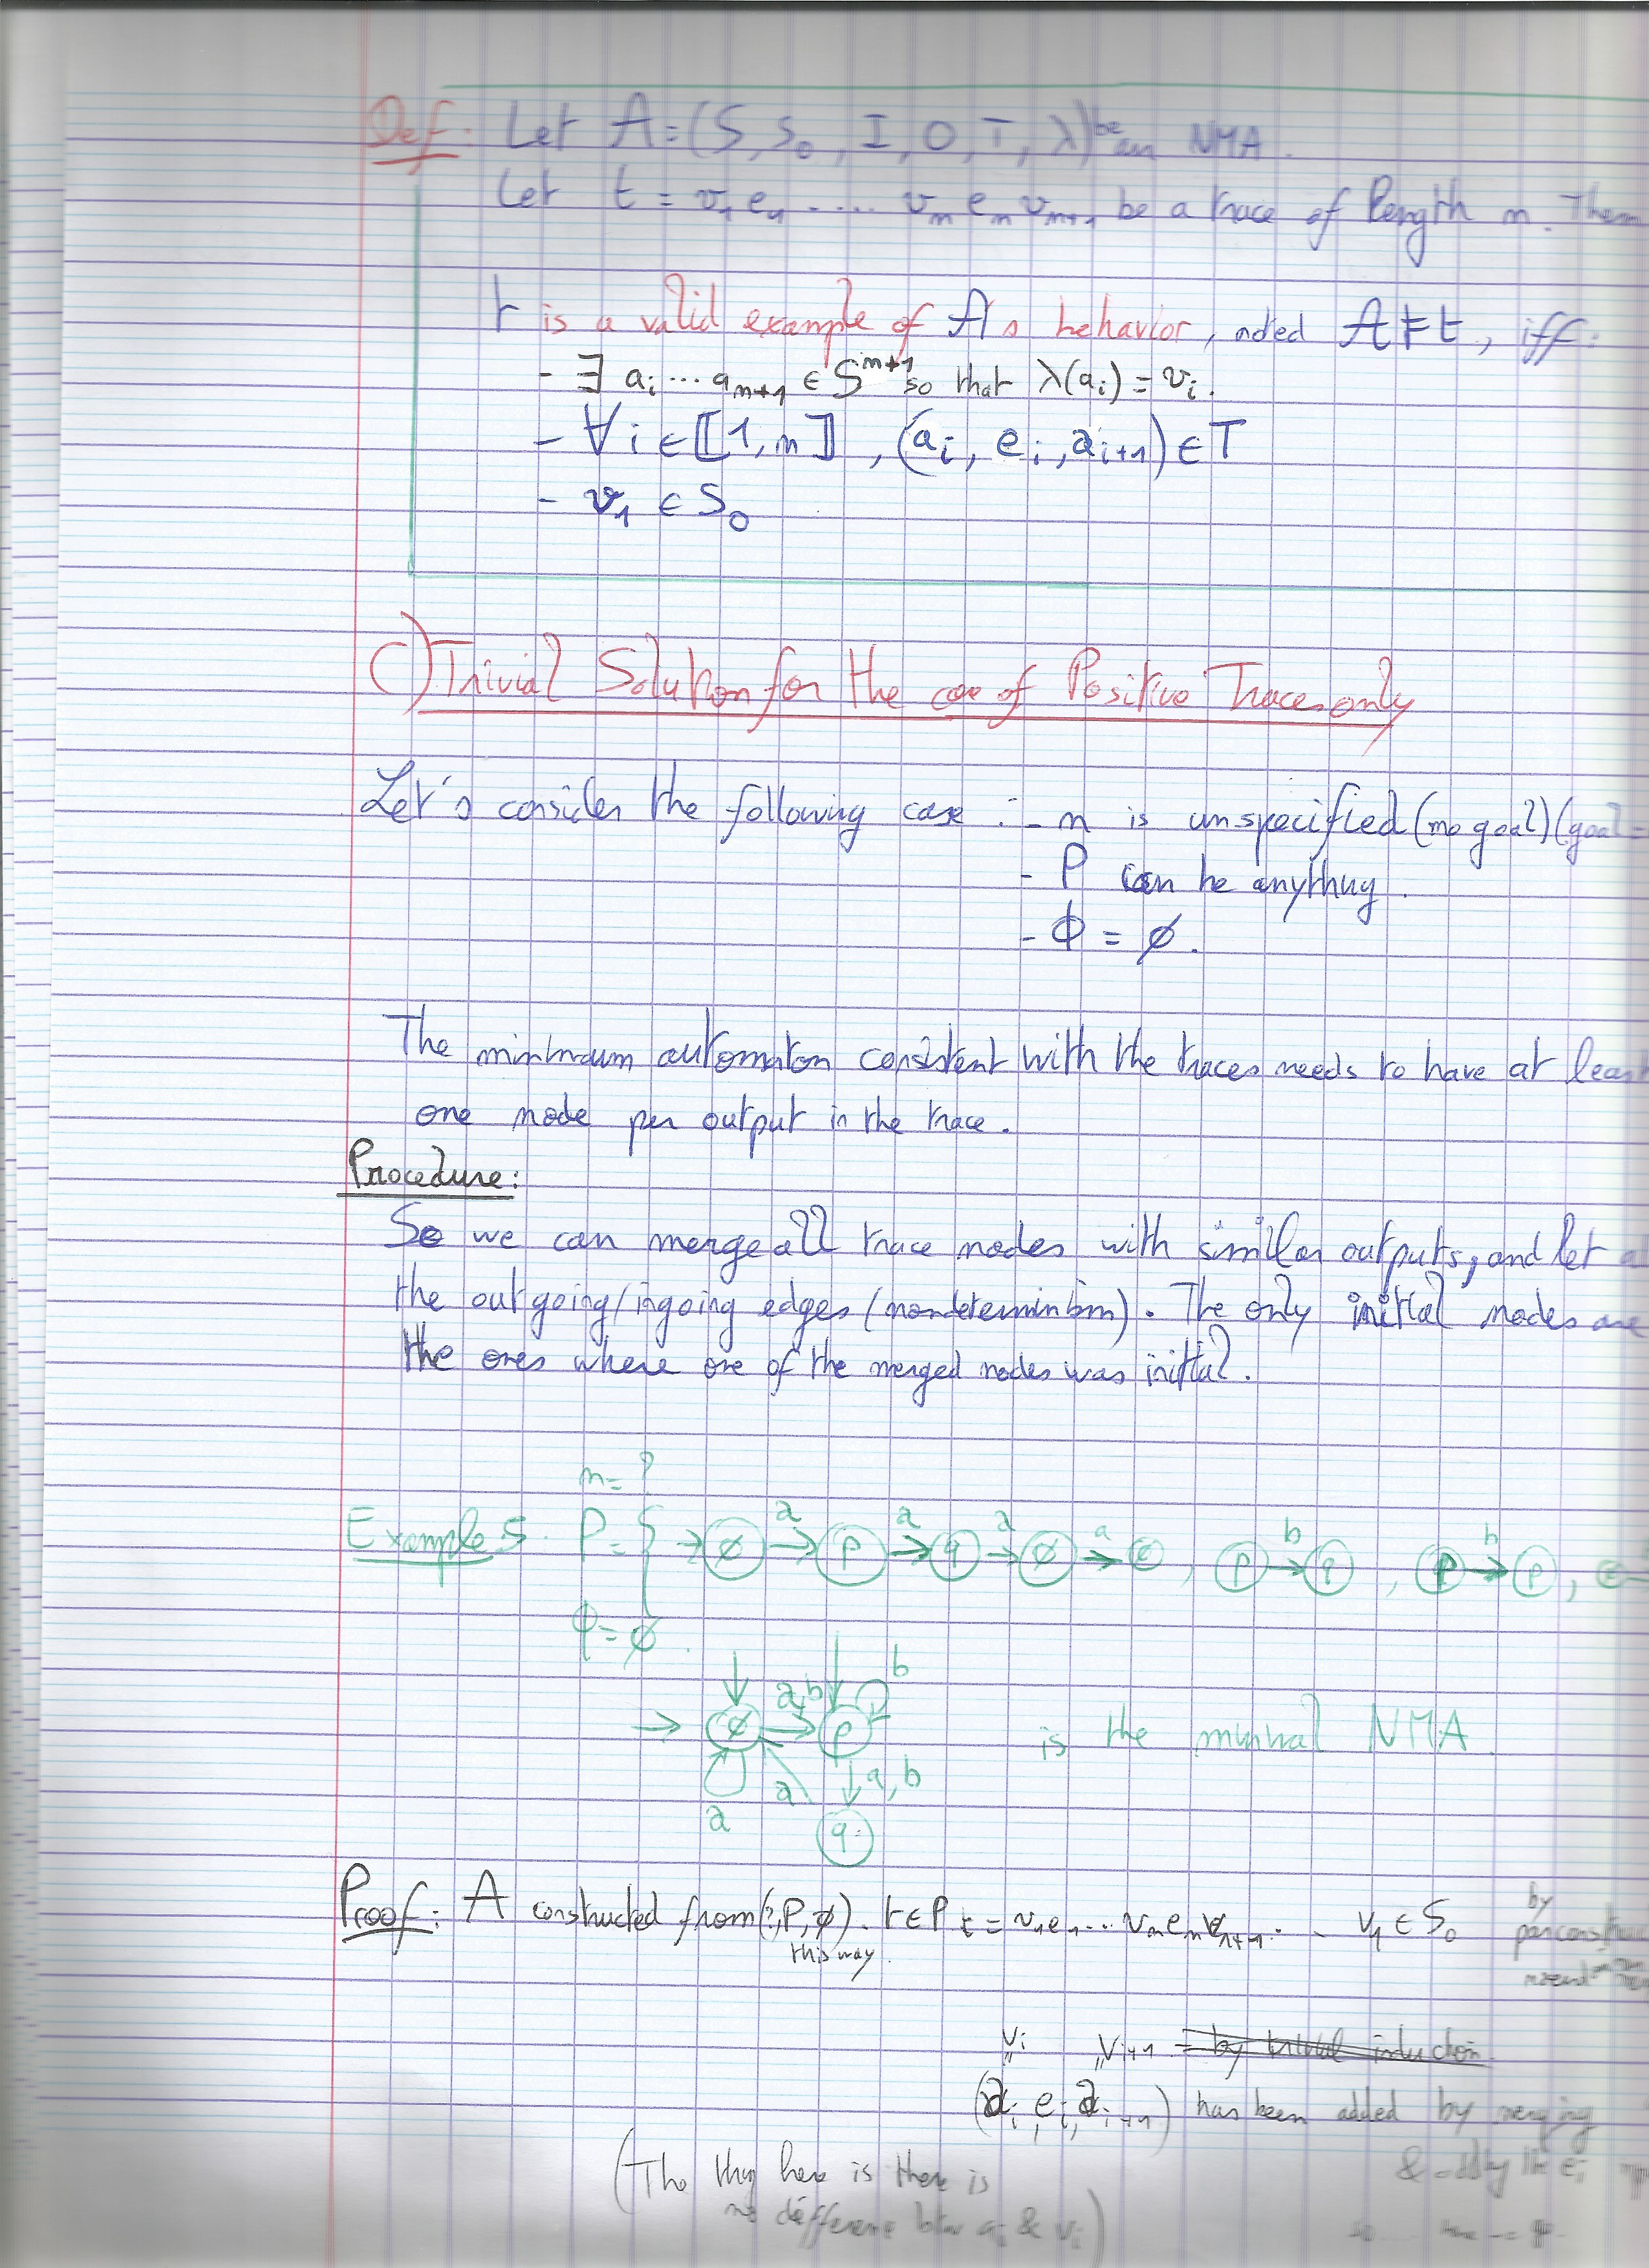 Def: Let A=(S, S₀, I, O, T, λ) be an NMA.
Let t = v₁e₁ ..... vₙ eₙ vₙ₊₁ be a trace of length n. Then
t is a valid example of A's behavior, noted A ⊧ t, iff:
- ∃ aᵢ ... aₙ₊₁ ∈ Sⁿ⁺¹ so that λ(aᵢ) = vᵢ.
- ∀ i ∈ ⟦1, n⟧, (aᵢ, eᵢ, aᵢ₊₁) ∈ T
- v₁ ∈ S₀
C) Trivial Solution for the case of Positive Traces only
Let's consider the following case : - n is unspecified (no goal) (goal =
- P can be anything.
- Φ = ∅.
The minimum automaton consistent with the traces needs to have at least
one node per output in the trace.
Procedure:
So we can merge all trace nodes with similar outputs, and let
the outgoing/ingoing edges (nondeterminism). The only initial nodes are
the ones where one of the merged nodes was initial.
n = ?
Example 5. P = { → ∅ a → p a → q a → ∅ a → , p b → q , p b → p ,
φ = ∅.
b
a,b
→ ∅ → p is the minimal NMA.
a a a, b
q
Proof: A constructed from (?, P, ∅). t ∈ P t = v₁e₁ ... vₙeₙvₙ₊₁. - v₁ ∈ S₀ by
this way
vᵢ vᵢ₊₁ = by trivial induction
(aᵢ, eᵢ, aᵢ₊₁) has been added by merging
(The thing here is there is
no difference btw aᵢ & vᵢ)